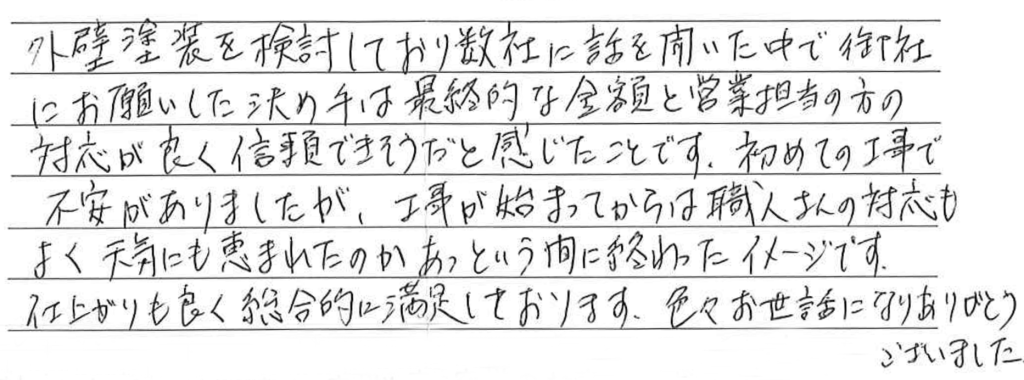 外壁塗装を検討しており数社に話を聞いた中で御社
にお願いした決め手は最終的な金額と営業担当の方の
対応が良く信頼できそうだと感じたことです。初めての工事で
不安がありましたが、工事が始まってからは職人さんの対応も
よく天気にも恵まれたのかあっという間に終わったイメージです。
仕上がりも良く総合的に満足しております。色々お世話になりありがとう
ございました。